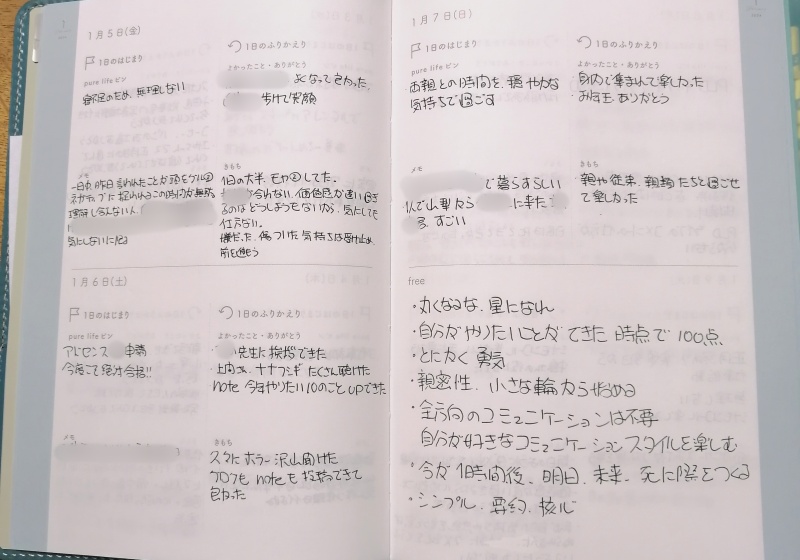 1月5日(金)
1日のはじまり
pure life ピン
寝不足のため、無理しない
メモ
一日中、昨日言われたことが頭をグルグル
ネガティブに捉われるこの時間が無駄
理解し合えない人、
気にしないに限る
1日のふりかえり
よかったこと・ありがとう
よくなって良かった
歩けて笑顔
きもち
1日の大半、モヤモヤしてた。
合わない、価値色が違い過ぎ
るのはどうしようもないから、気にしても
仕方ない。
嫌だった、傷ついた気持ちは受け止め、
前を向こう
1月6日(土)
1日のはじまり
pure life ピン
アドセンス 申請
今度こそ絶対合格!!
メモ
1日のふりかえり
よかったこと・ありがとう
先生に挨拶できた
上内さん、ナナフシギ たくさん聴けた
note 今年やりたい10のこと UPできた
きもち
スキにホラー沢山聞けた
ブログも noteも投稿できて
良かった
1月7日(日)
1日のはじまり
pure life ピン
両親との時間を、穏やかな
気持ちで過ごす
メモ
で暮らすらしい
1人で山梨から に来た
る、すごい
1日のふりかえり
よかったこと・ありがとう
身内で集まれて楽しかった
お年玉、ありがとう
きもち
親や従弟、親類たちと過ごせ
て楽しかった
free
・丸くなるな、星になれ
・自分がやりたいことができた時点で100点
・とにかく 勇気
・親密性、小さな輪から始める
・全方向のコミュニケーションは不要
自分が好きなコミュニケーションスタイルを楽しむ
・今が 1時間後、明日、未来、死に際をつくる
・シンプル、要約、核心